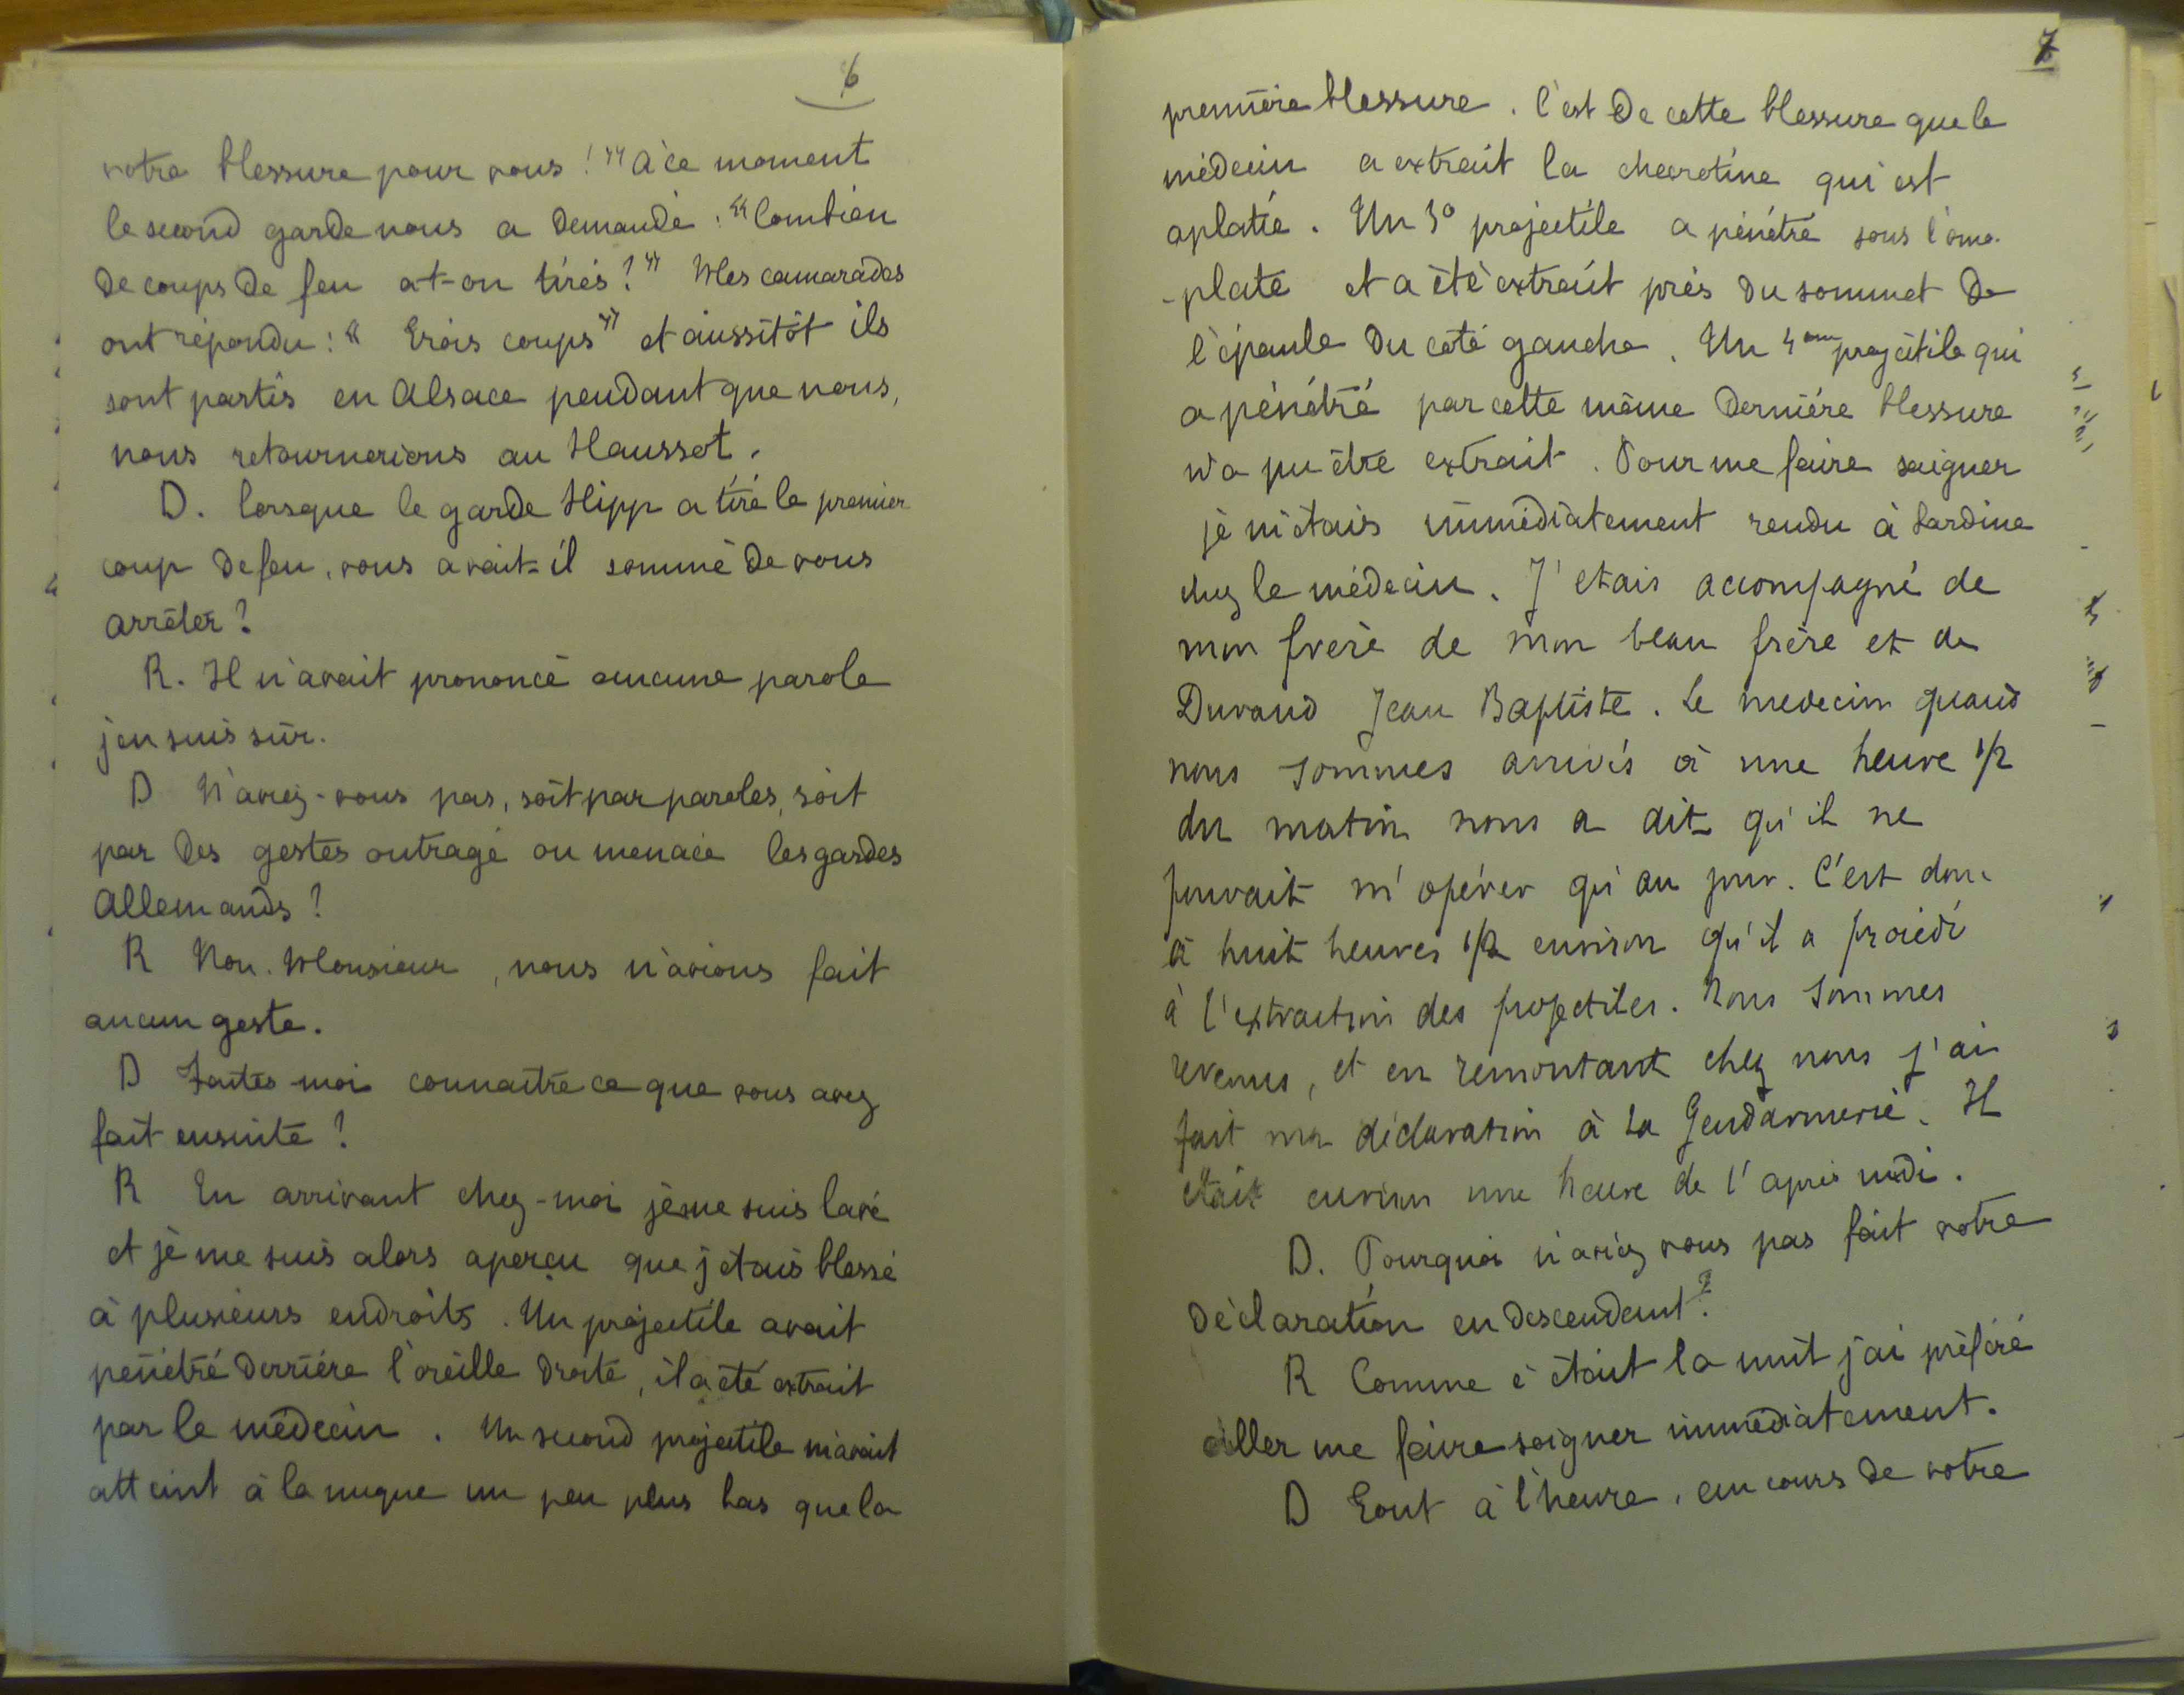 6
votre blessure pour vous ! " A ce moment
le second garde nous a demandé : " Combien
de coups de feu a-t-on tirés ? " Mes camarades
ont répondu : " Trois coups " et aussitôt ils
sont partis en Alsace pendant que nous,
nous retournerions au Hausset.
D. Lorsque le garde Hipp a tiré le premier
coup de feu, vous avait-il sommé de vous
arrêter ?
R. Il n'avait prononcé aucune parole
j'en suis sûr.
D N'aviez-vous pas, soit par paroles, soit
par des gestes outragé ou menacé les gardes
Allemands ?
R Non. Monsieur, nous n'avions fait
aucun geste.
D Faites-moi connaître ce que vous avez
fait ensuite ?
R En arrivant chez-moi je me suis lavé
et je me suis alors aperçu que j'étais blessé
à plusieurs endroits. Un projectile avait
pénétré derrière l'oreille droite, il a été extrait
par le médecin. Un second projectile m'avait
atteint à la nuque un peu plus bas que la
7
première blessure. C'est de cette blessure que le
médecin a extrait la chevrotine qui est
aplatie. Un 3° projectile a pénétré sous l'omo-
-plate et a été extrait près du sommet de
l'épaule du côté gauche. Un 4eme projectile qui
a pénétré par cette même dernière blessure
n'a pu être extrait. Pour me faire soigner
je m'étais immédiatement rendu à
chez le médecin. J'etais accompagné de
mon frère de mon beau frère et de
Durand Jean Baptiste. Le medecin quand
nous sommes arrivés à une heure 1/2
du matin nous a dit qu'il ne
pouvait m'opérer qu'au jour. C'est donc
à huit heures 1/2 environ qu'il a procédé
à l'extraction des projectiles. Nous sommes
revenus, et en remontant chez nous j'ai
fait ma déclaration à la Gendarmerie. Il
était environ une heure de l'après midi.
D. Pourquoi n'aviez vous pas fait votre
déclaration en descendant ?
R Comme c'était la nuit j'ai préféré
aller me faire soigner immédiatement.
D Tout à l'heure, au cours de votre